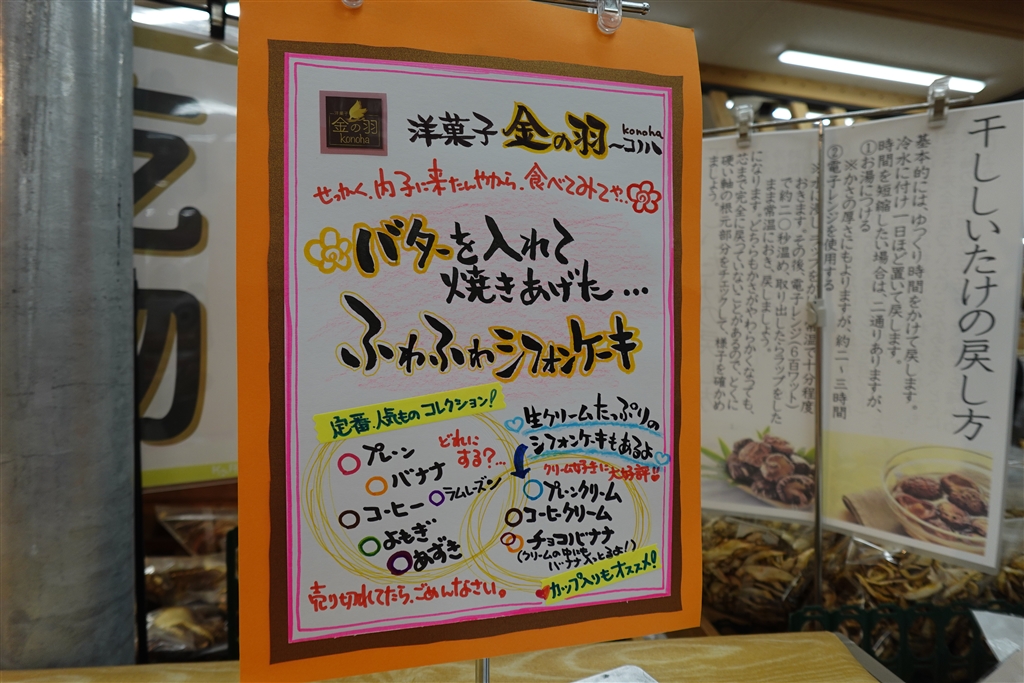 金の羽
konoha
洋菓子 金の羽
konoha
〜コノハ
せっかく、内子に来たんやから、食べてみてや…
バターを入れて
焼きあげた…
ふわふわシフォンケーキ
定番、人気ものコレクション!
どれに
する?…
プレーン
バナナ
ラムレーズン
コーヒー
よもぎ
あずき
生クリームたっぷりの
シフォンケーキもあるよ
クリーム好きに大好評!!
プレーンクリーム
コーヒークリーム
チョコバナナ
(クリームの中にも
バナナ入っとるよ!)
カップ入りもオススメ!
売り切れてたら、ごめんなさい。
干ししいたけの戻し方
基本的には、ゆっくり時間をかけて戻します。
冷水に付け一日ほど置いて戻します。
時間を短縮したい場合は、二通りありますが、
①お湯につける
※かさの厚さにもよりますが、約二〜三時間
②電子レンジを使用する
おきます。その後、電子レンジ(6百ワット)
で約二〇秒温め、取り出したらラップをした
まま常温におき、戻しましょう。
になります。どちらもかさがやわらかくなっても、
芯まで完全に戻っていないことがあるので、とくに
硬い軸の根元部分をチェックして、様子を確かめ
ましょう。